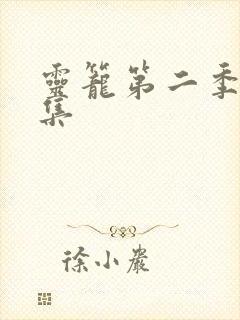 靈籠第二季
集
徐小巖